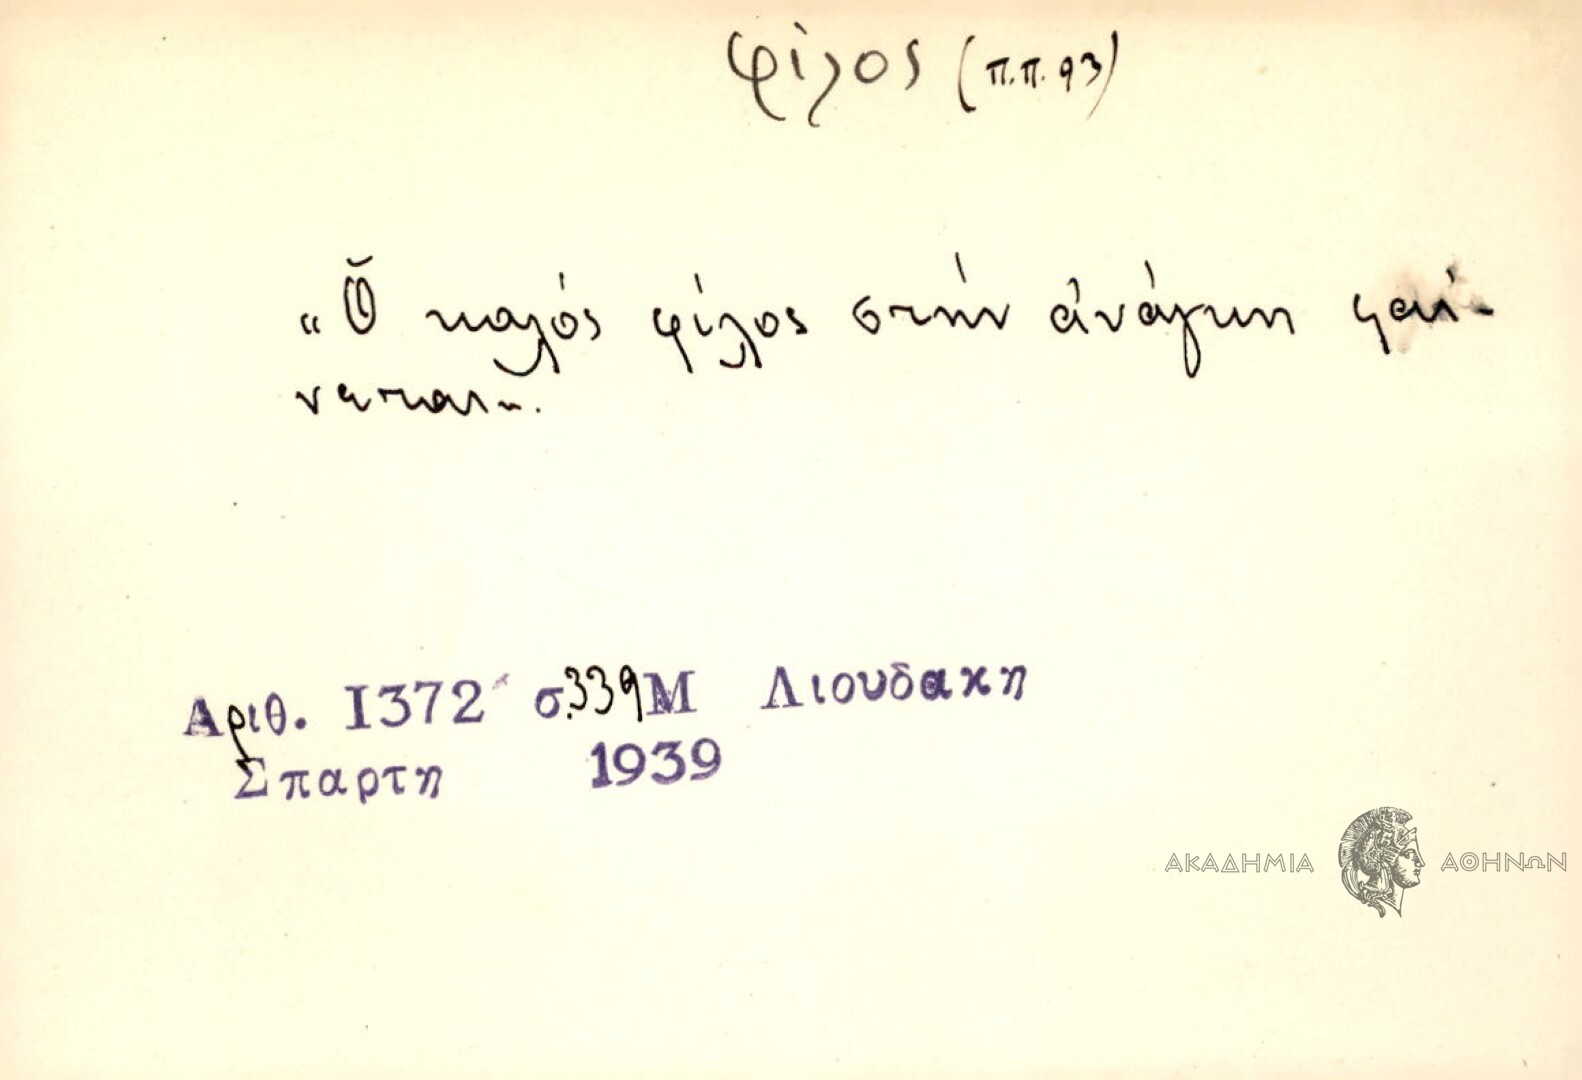 φίλος (π.π. 93)
"Ὁ καλός φίλος στήν ἀνάγκη φαί-
νεται".
Αριθ. 1372 σ. 339 Μ Λιουδακη
Σπαρτη 1939
ΑΚΑΔΗΜΙΑ ΑΘΗΝΩΝ